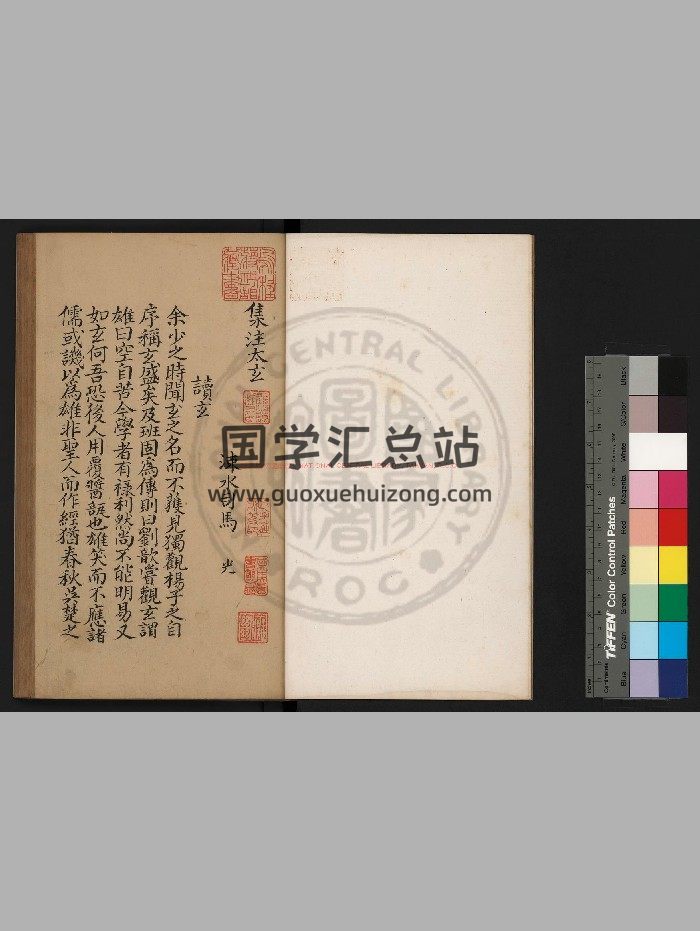 集注太玄
涑水司馬 光
讀玄
余少之時聞玄之名而不獲見獨觀楊子之自
序稱玄盛矣及班固為傳則曰劉歆嘗觀玄謂
雄曰空自苦今學者有祿利然尚不能明易又
如玄何吾恐後人用覆醬瓿也雄笑而不應諸
儒或譏以為雄非聖人而作經猶春秋吳楚之
国学汇总站
www.guoxuehuizong.com
CENTRAL LIBRARY
ROC
TIFFEN Color Control Patches
Blue
Cyan
Green
Yellow
Red
Magenta
White
3/Color
Black